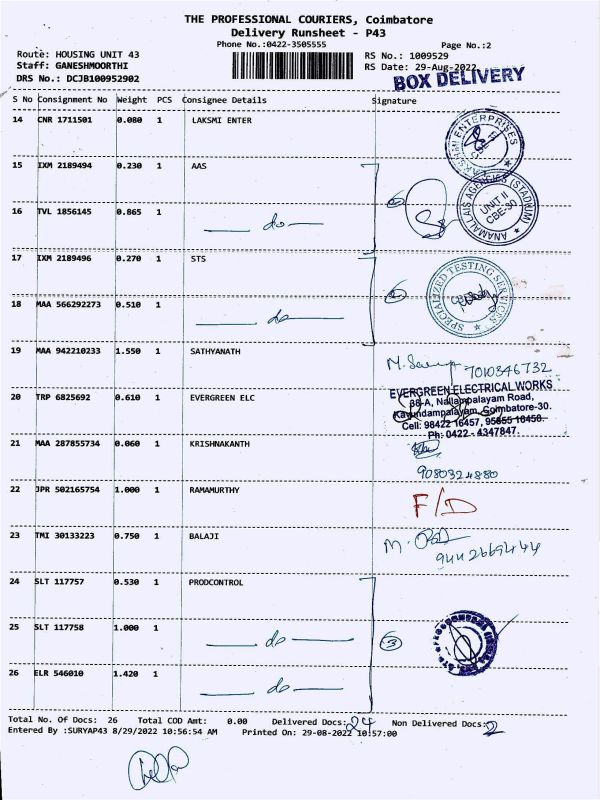 THE PROFESSIONAL COURIERS, Coimbatore
Delivery Runsheet - P43
Phone No.:0422-3505555 Page No.:2
Route: HOUSING UNIT 43 RS No.: 1009529
Staff: GANESHMOORTHI RS Date: 29-Aug-2022
DRS No.: DCJB100952902
BOX DELIVERY
S No Consignment No Weight PCS Consignee Details Signature
14 CNR 1711501 0.080 1 LAKSMI ENTER
ENTERPRISES
15 IXM 2189494 0.230 1 AAS
ANAMALLAIS AGENCIES (STADIUM)
UNIT II
CBE-30
16 TVL 1856145 0.865 1 do
17 IXM 2189496 0.270 1 STS
SPECIALIZED TESTING SERVICES
18 MAA 566292273 0.510 1 do
19 MAA 942210233 1.550 1 SATHYANATH
7010346732
20 TRP 6825692 0.610 1 EVERGREEN ELC
EVERGREEN ELECTRICAL WORKS
Nallampalayam Road,
Kavundampalayam, Coimbatore-30.
Cell: 98422 16457, 95855 16458.
Ph: 0422 - 4347847.
21 MAA 287855734 0.060 1 KRISHNAKANTH
9080324880
22 JPR 502165754 1.000 1 RAMAMURTHY F/D
23 TMI 30133223 0.750 1 BALAJI
9442669444
24 SLT 117757 0.530 1 PRODCONTROL
25 SLT 117758 1.000 1 do 3
26 ELR 546010 1.420 1 do
Total No. Of Docs: 26 Total COD Amt: 0.00 Delivered Docs: 24 Non Delivered Docs: 2
Entered By :SURYAP43 8/29/2022 10:56:54 AM Printed On: 29-08-2022 10:57:00